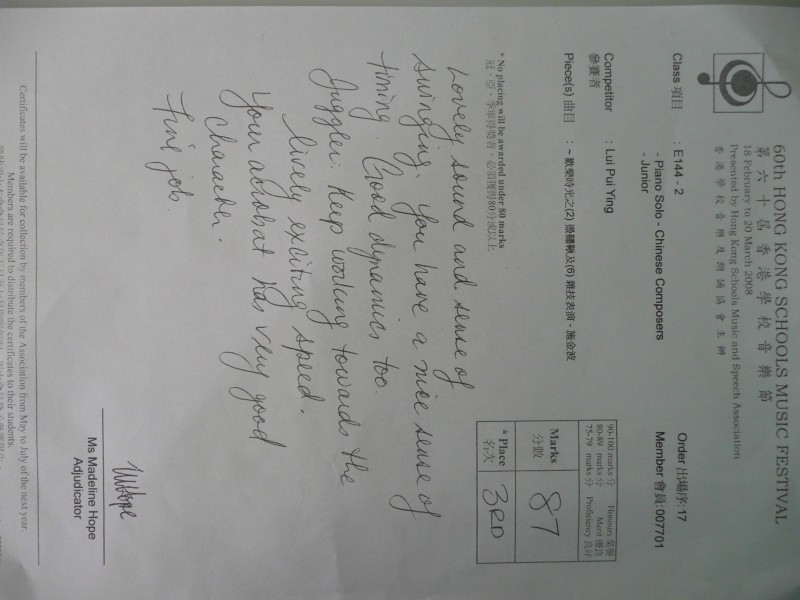 60th HONG KONG SCHOOLS MUSIC FESTIVAL
第六十屆香港學校音樂節
18 February to 20 March 2008
Presented by Hong Kong Schools Music and Speech Association
香港學校音樂及朗誦協會主辦
Class 項目 : E144 - 2 Order 出場序: 17
- Piano Solo - Chinese Composers Member 會員: 007701
- Junior
Competitor : Lui Pui Ying
參賽者
90-100 marks 分 Honours 榮譽
80-89 marks 分 Merit 優良
75-79 marks 分 Proficiency 良好
Piece(s) 曲目 : ~ 歡樂時光之(2) 盪鞦韆及(6) 雜技表演 - 施金波
Marks 分數 87
* Place 名次 3RD
* No placing will be awarded under 80 marks
冠、亞、季軍得獎者,必須獲得80分或以上
Lovely sound and sense of
swinging. You have a nice sense of
timing. Good dynamics too.
Juggler: Keep working towards the
lively exciting speed.
Your acrobat has very good
character.
Fine job.
MHope
Ms Madeline Hope
Adjudicator
Certificates will be available for collection by members of the Association from May to July of the next year.
Members are required to distribute the certificates to their students.